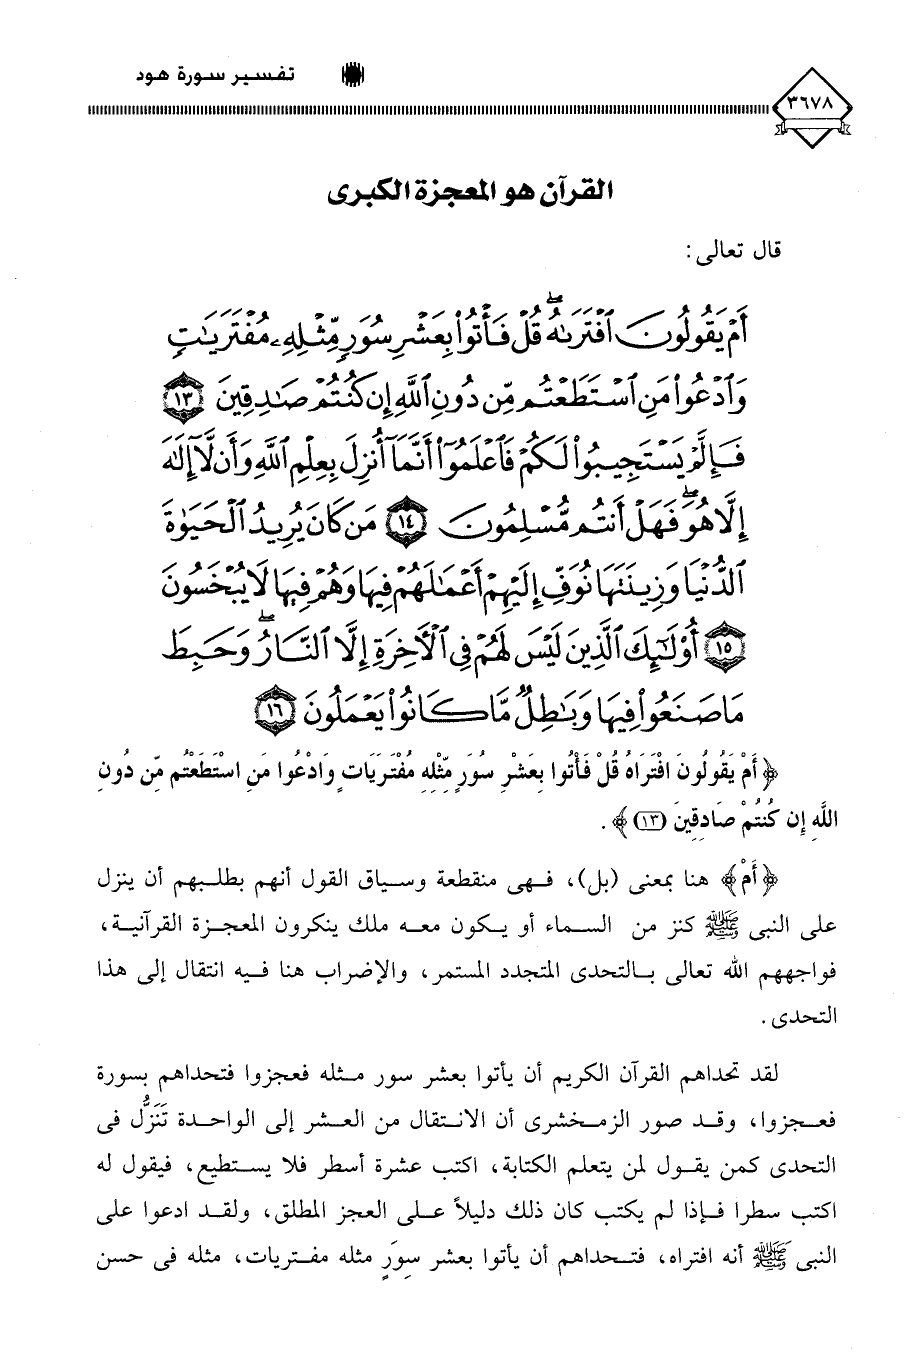 تفسير سورة هود
٣٦٧٨
القرآن هو المعجزة الكبرى
قال تعالى:
أَمْ يَقُولُونَ ٱفْتَرَىٰهُ ۖ قُلْ فَأْتُوا۟ بِعَشْرِ سُوَرٍ مِّثْلِهِۦ مُفْتَرَيَٰتٍ
وَٱدْعُوا۟ مَنِ ٱسْتَطَعْتُم مِّن دُونِ ٱللَّهِ إِن كُنتُمْ صَٰدِقِينَ ١٣
فَإِلَّمْ يَسْتَجِيبُوا۟ لَكُمْ فَٱعْلَمُوٓا۟ أَنَّمَآ أُنزِلَ بِعِلْمِ ٱللَّهِ وَأَن لَّآ إِلَٰهَ
إِلَّا هُوَ ۖ فَهَلْ أَنتُم مُّسْلِمُونَ ١٤ مَن كَانَ يُرِيدُ ٱلْحَيَوٰةَ
ٱلدُّنْيَا وَزِينَتَهَا نُوَفِّ إِلَيْهِمْ أَعْمَٰلَهُمْ فِيهَا وَهُمْ فِيهَا لَا يُبْخَسُونَ
١٥ أُو۟لَٰٓئِكَ ٱلَّذِينَ لَيْسَ لَهُمْ فِى ٱلْءَاخِرَةِ إِلَّا ٱلنَّارُ ۖ وَحَبِطَ
مَا صَنَعُوا۟ فِيهَا وَبَٰطِلٌ مَّا كَانُوا۟ يَعْمَلُونَ ١٦
﴿أَمْ يَقُولُونَ افْتَرَاهُ قُلْ فَأْتُوا بِعَشْرِ سُوَرٍ مِّثْلِهِ مُفْتَرَيَاتٍ وَادْعُوا مَنِ اسْتَطَعْتُم مِّن دُونِ
اللَّهِ إِن كُنتُمْ صَادِقِينَ (١٣)﴾.
﴿أَمْ﴾ هنا بمعنى (بل)، فهى منقطعة وسياق القول أنهم بطلبهم أن ينزل
على النبى ﷺ كنز من السماء أو يكون معه ملك ينكرون المعجزة القرآنية،
فواجههم الله تعالى بالتحدى المتجدد المستمر، والإضراب هنا فيه انتقال إلى هذا
التحدى.
لقد تحداهم القرآن الكريم أن يأتوا بعشر سور مثله فعجزوا فتحداهم بسورة
فعجزوا، وقد صور الزمخشرى أن الانتقال من العشر إلى الواحدة تَنَزُّل فى
التحدى كمن يقول لمن يتعلم الكتابة، اكتب عشرة أسطر فلا يستطيع، فيقول له
اكتب سطرا فإذا لم يكتب كان ذلك دليلاً على العجز المطلق، ولقد ادعوا على
النبى ﷺ أنه افتراه، فتحداهم أن يأتوا بعشر سِوَرٍ مثله مفتريات، مثله فى حسن